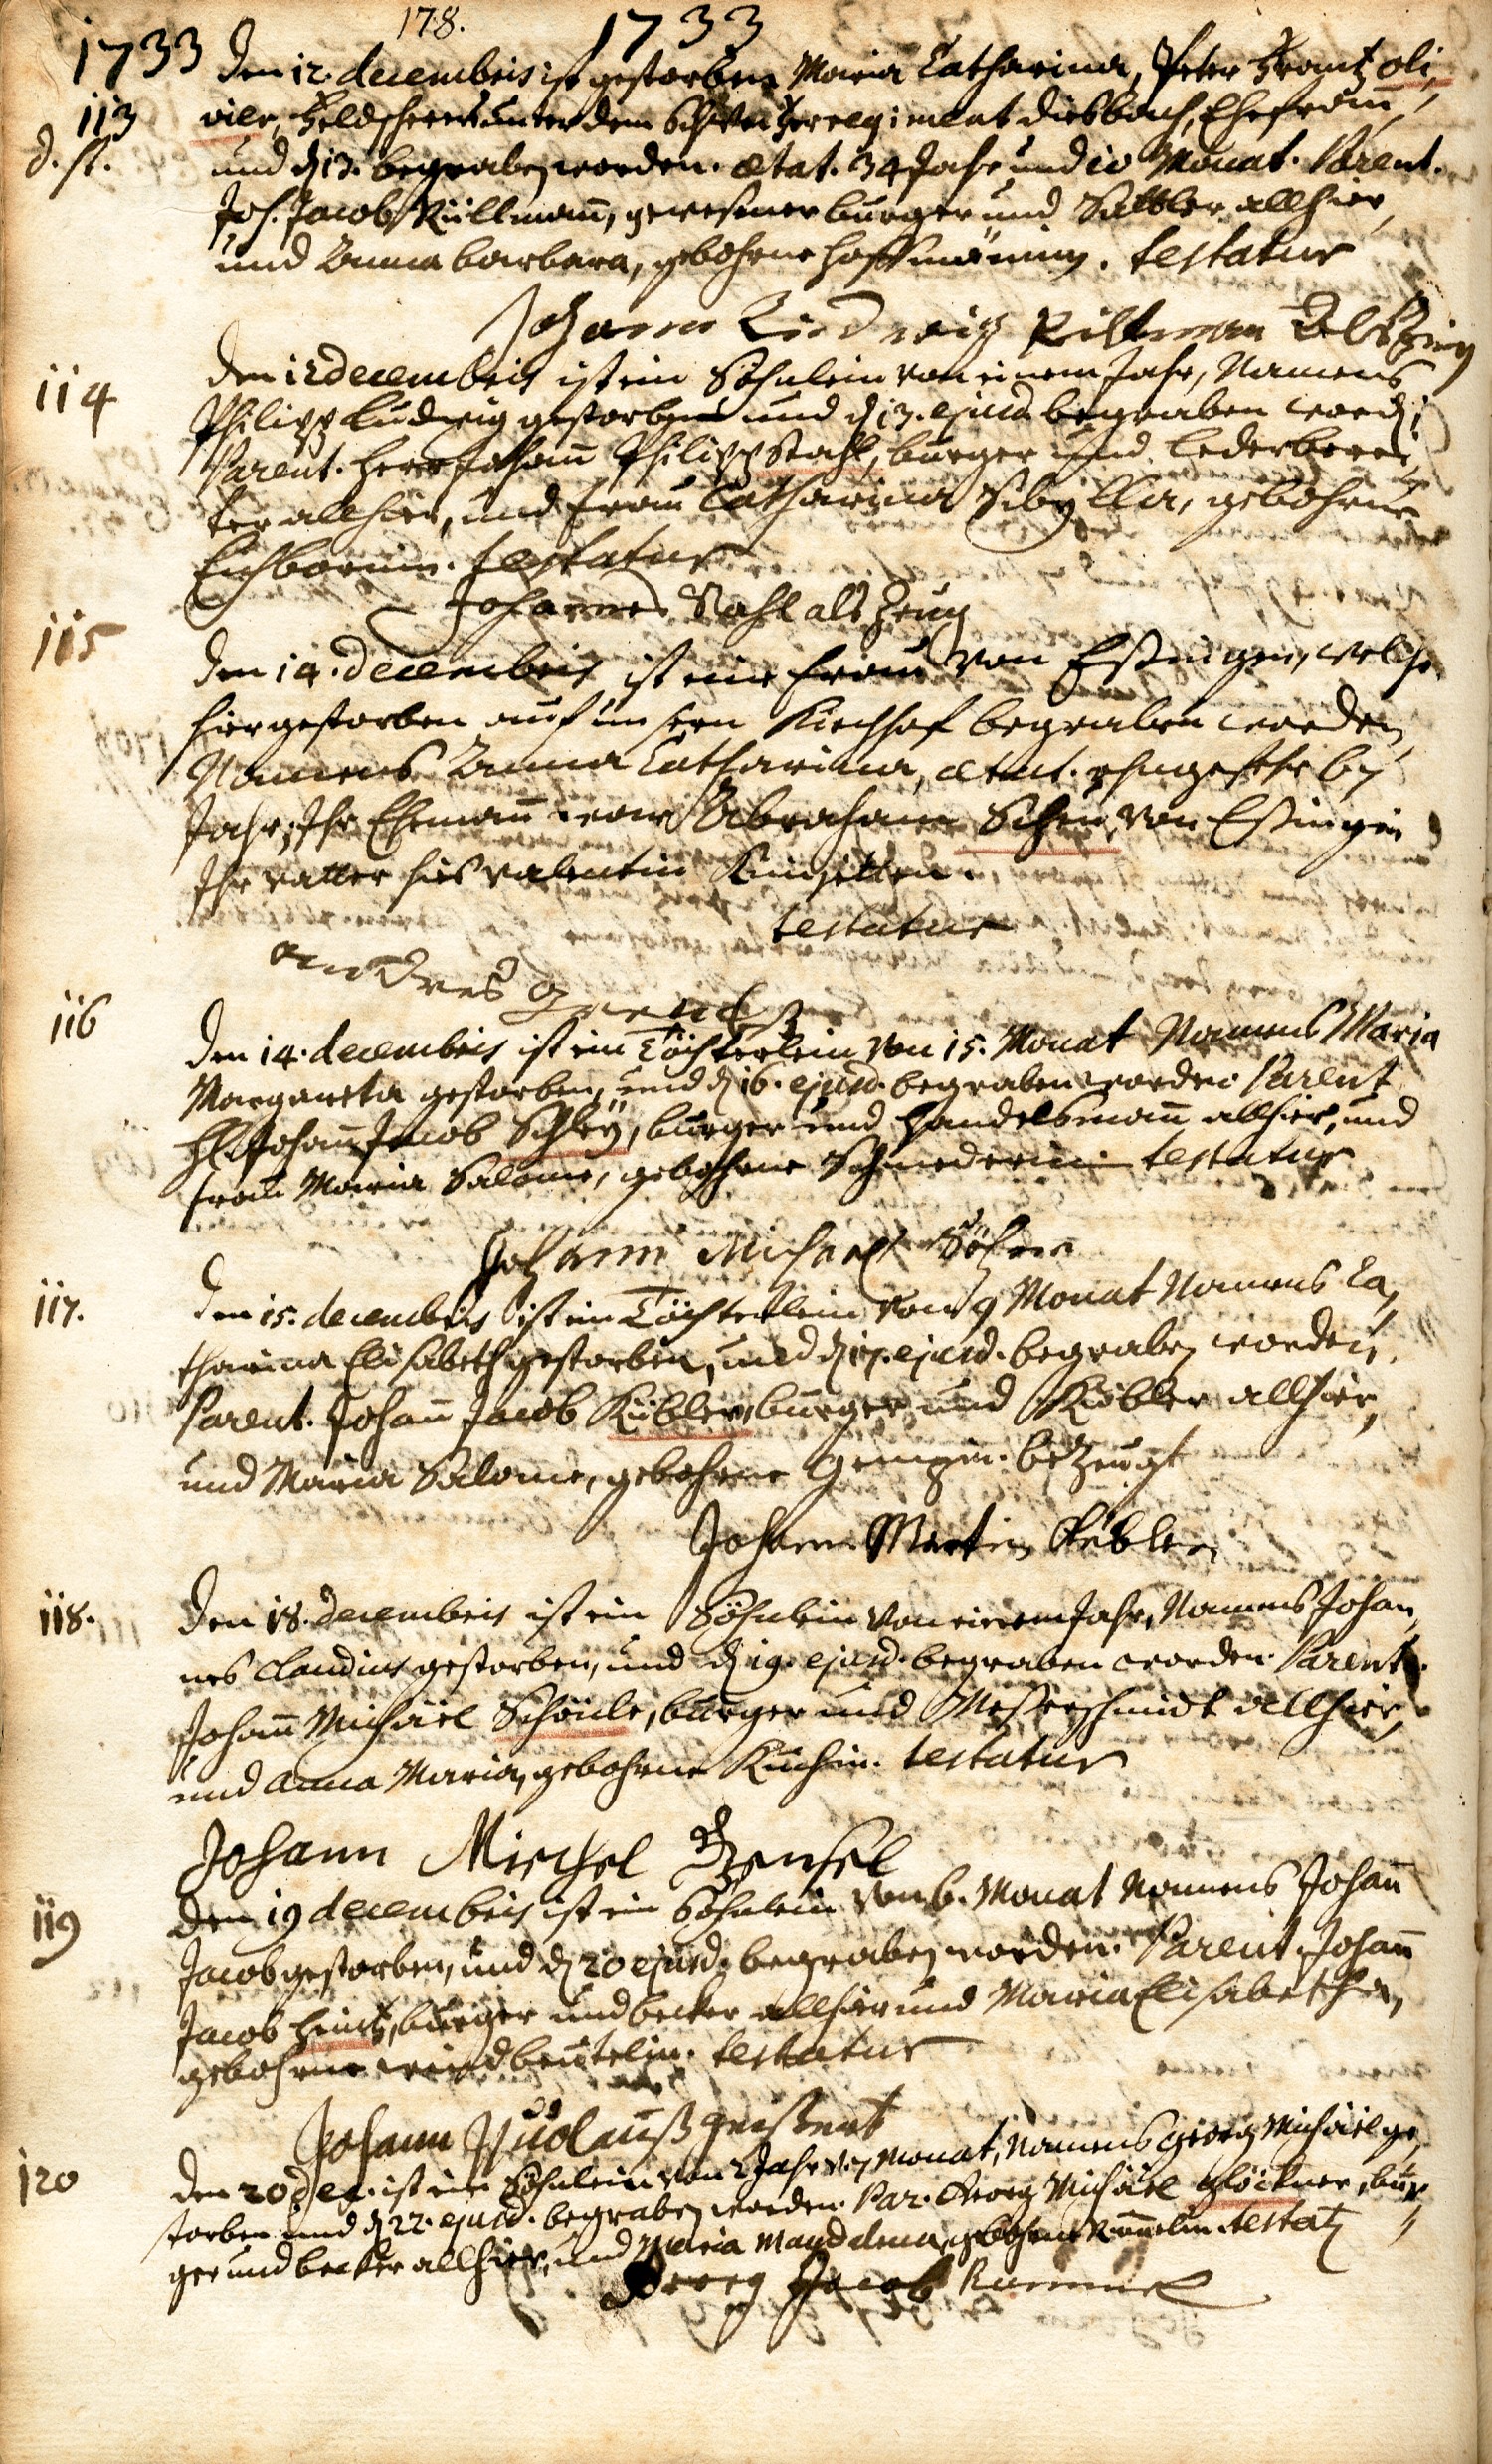 178.
1733
1733
113
d. st.
Den 12. decembris ist gestorben Maria Catharina, Peter Frantz oli,
vier, Feldscherer unter dem Schweitzer regiment Diesbach, Ehefrau,
und d. 13. begraben worden. ætat. 34 Jahr und 10 Monat. Parent.
Joh. Jacob Rüllmañ, gewesener burger und Sattler allhier,
und Anna barbara, gebohrne Hoffmänin. testatur
Johann Ludwig Rillman Als Zeug
114
Den 12 decembris ist ein Söhnlein von einem Jahr, Namens
Philipp Ludwig gestorben und d. 13. ejusd. begraben word.
Parent. Herr Johañ Philipp Stahl, burger und lederberei,
ter allhier, und Frau Catharina Sibylla, gebohrne
Eichbornin. testatur
Johannes Stahl als Zeug
115
Den 14. decembris ist eine Frau von Essingen, welche
hier gestorben auf unsern Kirchhof begraben worden,
Namens Anna Catharina, ætat. ohngefehr 67
Jahr, Ihr Ehemañ war Abraham Schu, von Essingen
Ihr vatter hies valentin
testatur
andres
116
Den 14. decembris ist ein Töchterlein von 15. Monat Namens Maria
Margareta gestorben, und d. 16. ejusd. begraben worden. Parent
H. Johañ Jacob Schleÿ, burger und Handelsmañ allhier, und
Frau Maria Salome, gebohrne Schmiederin testatur
Johann Michael
117.
Den 15. decembris ist ein Töchterlein von 9 Monat Namens Ca,
tharina Elisabeth gestorben, und d. 17. ejusd. begraben worden,
Parent. Johañ Jacob Kübler, burger und Kübler allhier,
und Maria Salome, gebohrne bezeugt
Johann Martin Kübler
118.
Den 18. decembris ist ein Söhnlein von einem Jahr, Namens Johan,
nes Claudius gestorben, und d. 19. ejusd. begraben worden. Parent.
Johañ Michäel Schäule, burger und Messerschmidt allhier,
und Anna Maria, gebohrne Kuchin. testatur
Johann Miechel Hensel
119
Den 19 decembris ist ein Söhnlein von 6. Monat Namens Johañ
Jacob gestorben, und d. 20 ejusd. begraben worden. Parent. Johañ
Jacob Hintz, burger und becker allhier und Maria Elisabetha,
gebohrne windbeutelin. testatur
Johann
120
Den 20 Dec. ist ein Söhnlein von 2 Jahr 7 Monat, Namens Georg Michäel ge,
storben und d. 22. ejusd. begraben worden. Par. Georg Michäel Glöckner, bur,
ger und becker allhier, und Maria Magdalena, gebohrne Rummelin. testat.
Georg Jacob Rummel